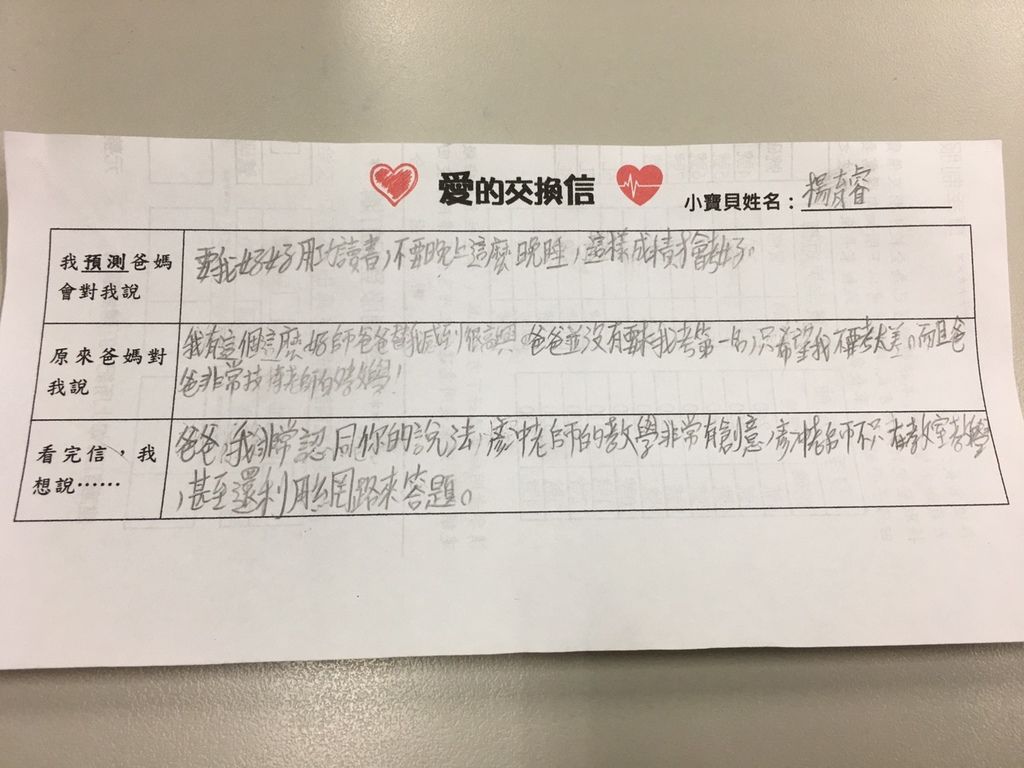 愛的交換信
小寶貝姓名：楊育睿
我預測爸媽
會對我說
要我好好用功讀書，不要晚上這麼晚睡，這樣成績才會好。
原來爸媽對
我說
我有這個這麼好師爸爸替我感到很高興 爸爸並沒有要求我考第一名，只希望我不要考太差。而且爸
爸非常支持老師的教學！
看完信，我
想說……
爸爸，我非常認同你的說法，彥冲老師的教學非常有創意，彥冲老師不只在教室教學
，甚至還利用網路來答題。